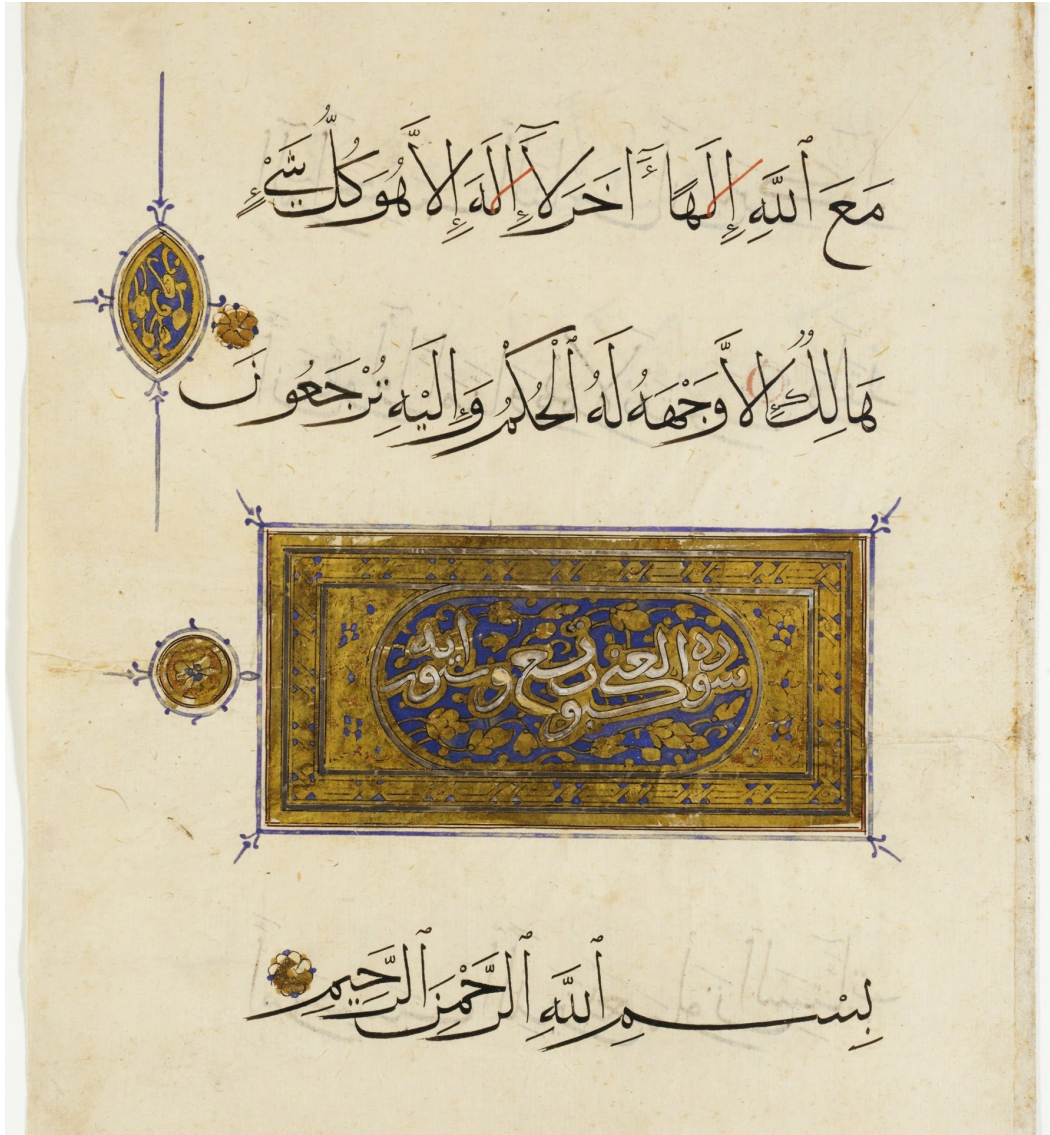 مَعَ ٱللَّهِ إِلَٰهًا ءَاخَرَ لَآ إِلَٰهَ إِلَّا هُوَ كُلُّ شَيْءٍ
هَالِكٌ إِلَّا وَجْهَهُ لَهُ ٱلْحُكْمُ وَإِلَيْهِ تُرْجَعُونَ
سورة العنكبوت تسع وستون اية
بِسْمِ ٱللَّهِ ٱلرَّحْمَٰنِ ٱلرَّحِيمِ